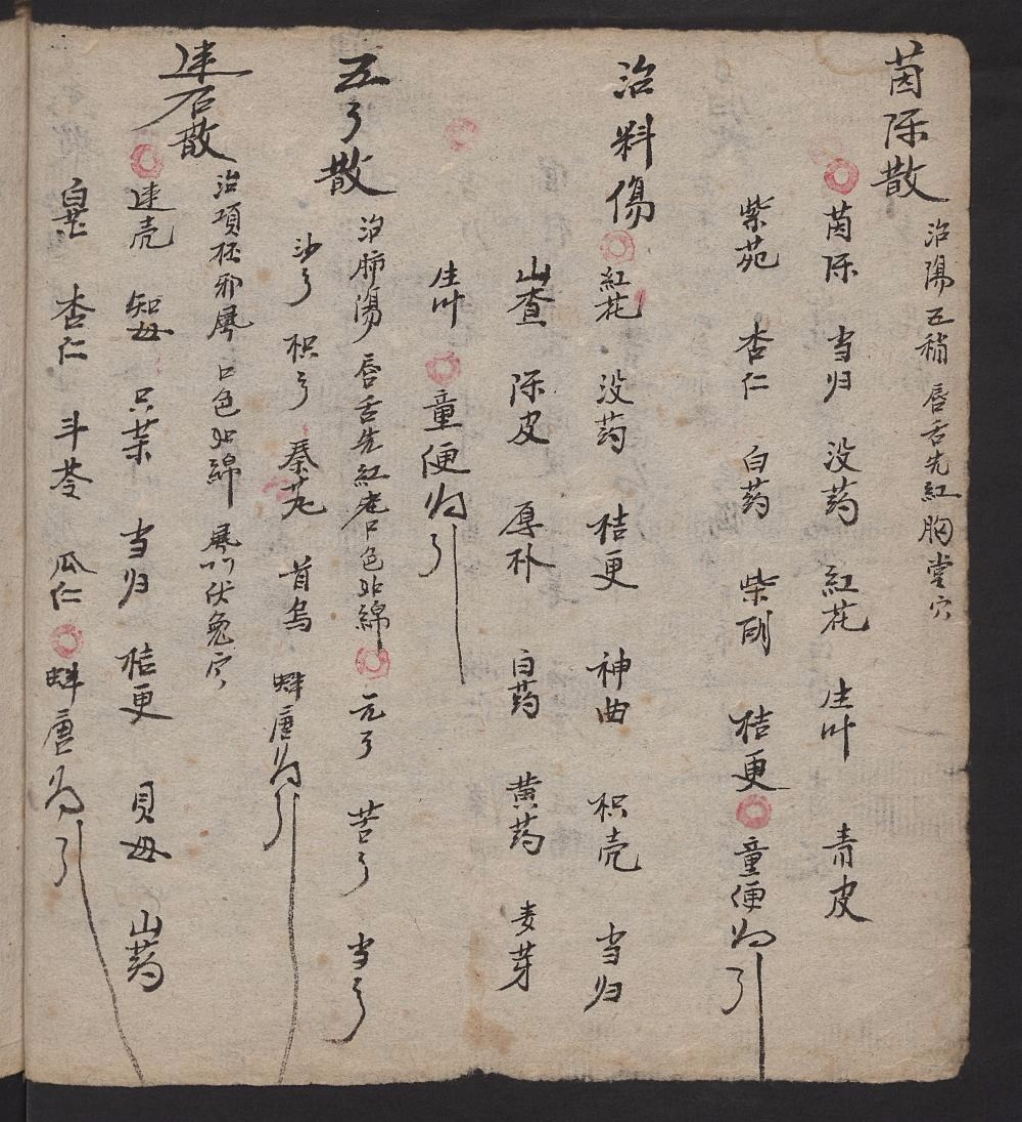 茵陈散 治陽五稍 唇舌先紅胸堂穴
茵陈 当归 没药 紅花 生叶 青皮
紫苑 杏仁 白药 柴胡 桔更 童便为引
治料傷 紅花 没药 桔更 神曲 枳壳 当归
山查 陈皮 厚朴 白药 黄药 麦芽
生叶 童便为引
五了散 治肺湯 唇舌先紅 口色如綿 元了 苦了 当了
沙了 枳了 秦艽 首乌 蜂唐为引
治項 邪風 口色如綿 風门伏兔穴
连石散
连壳 知母 当归 桔更 贝母 山药
杏仁 斗苓 瓜仁 蜂唐为引